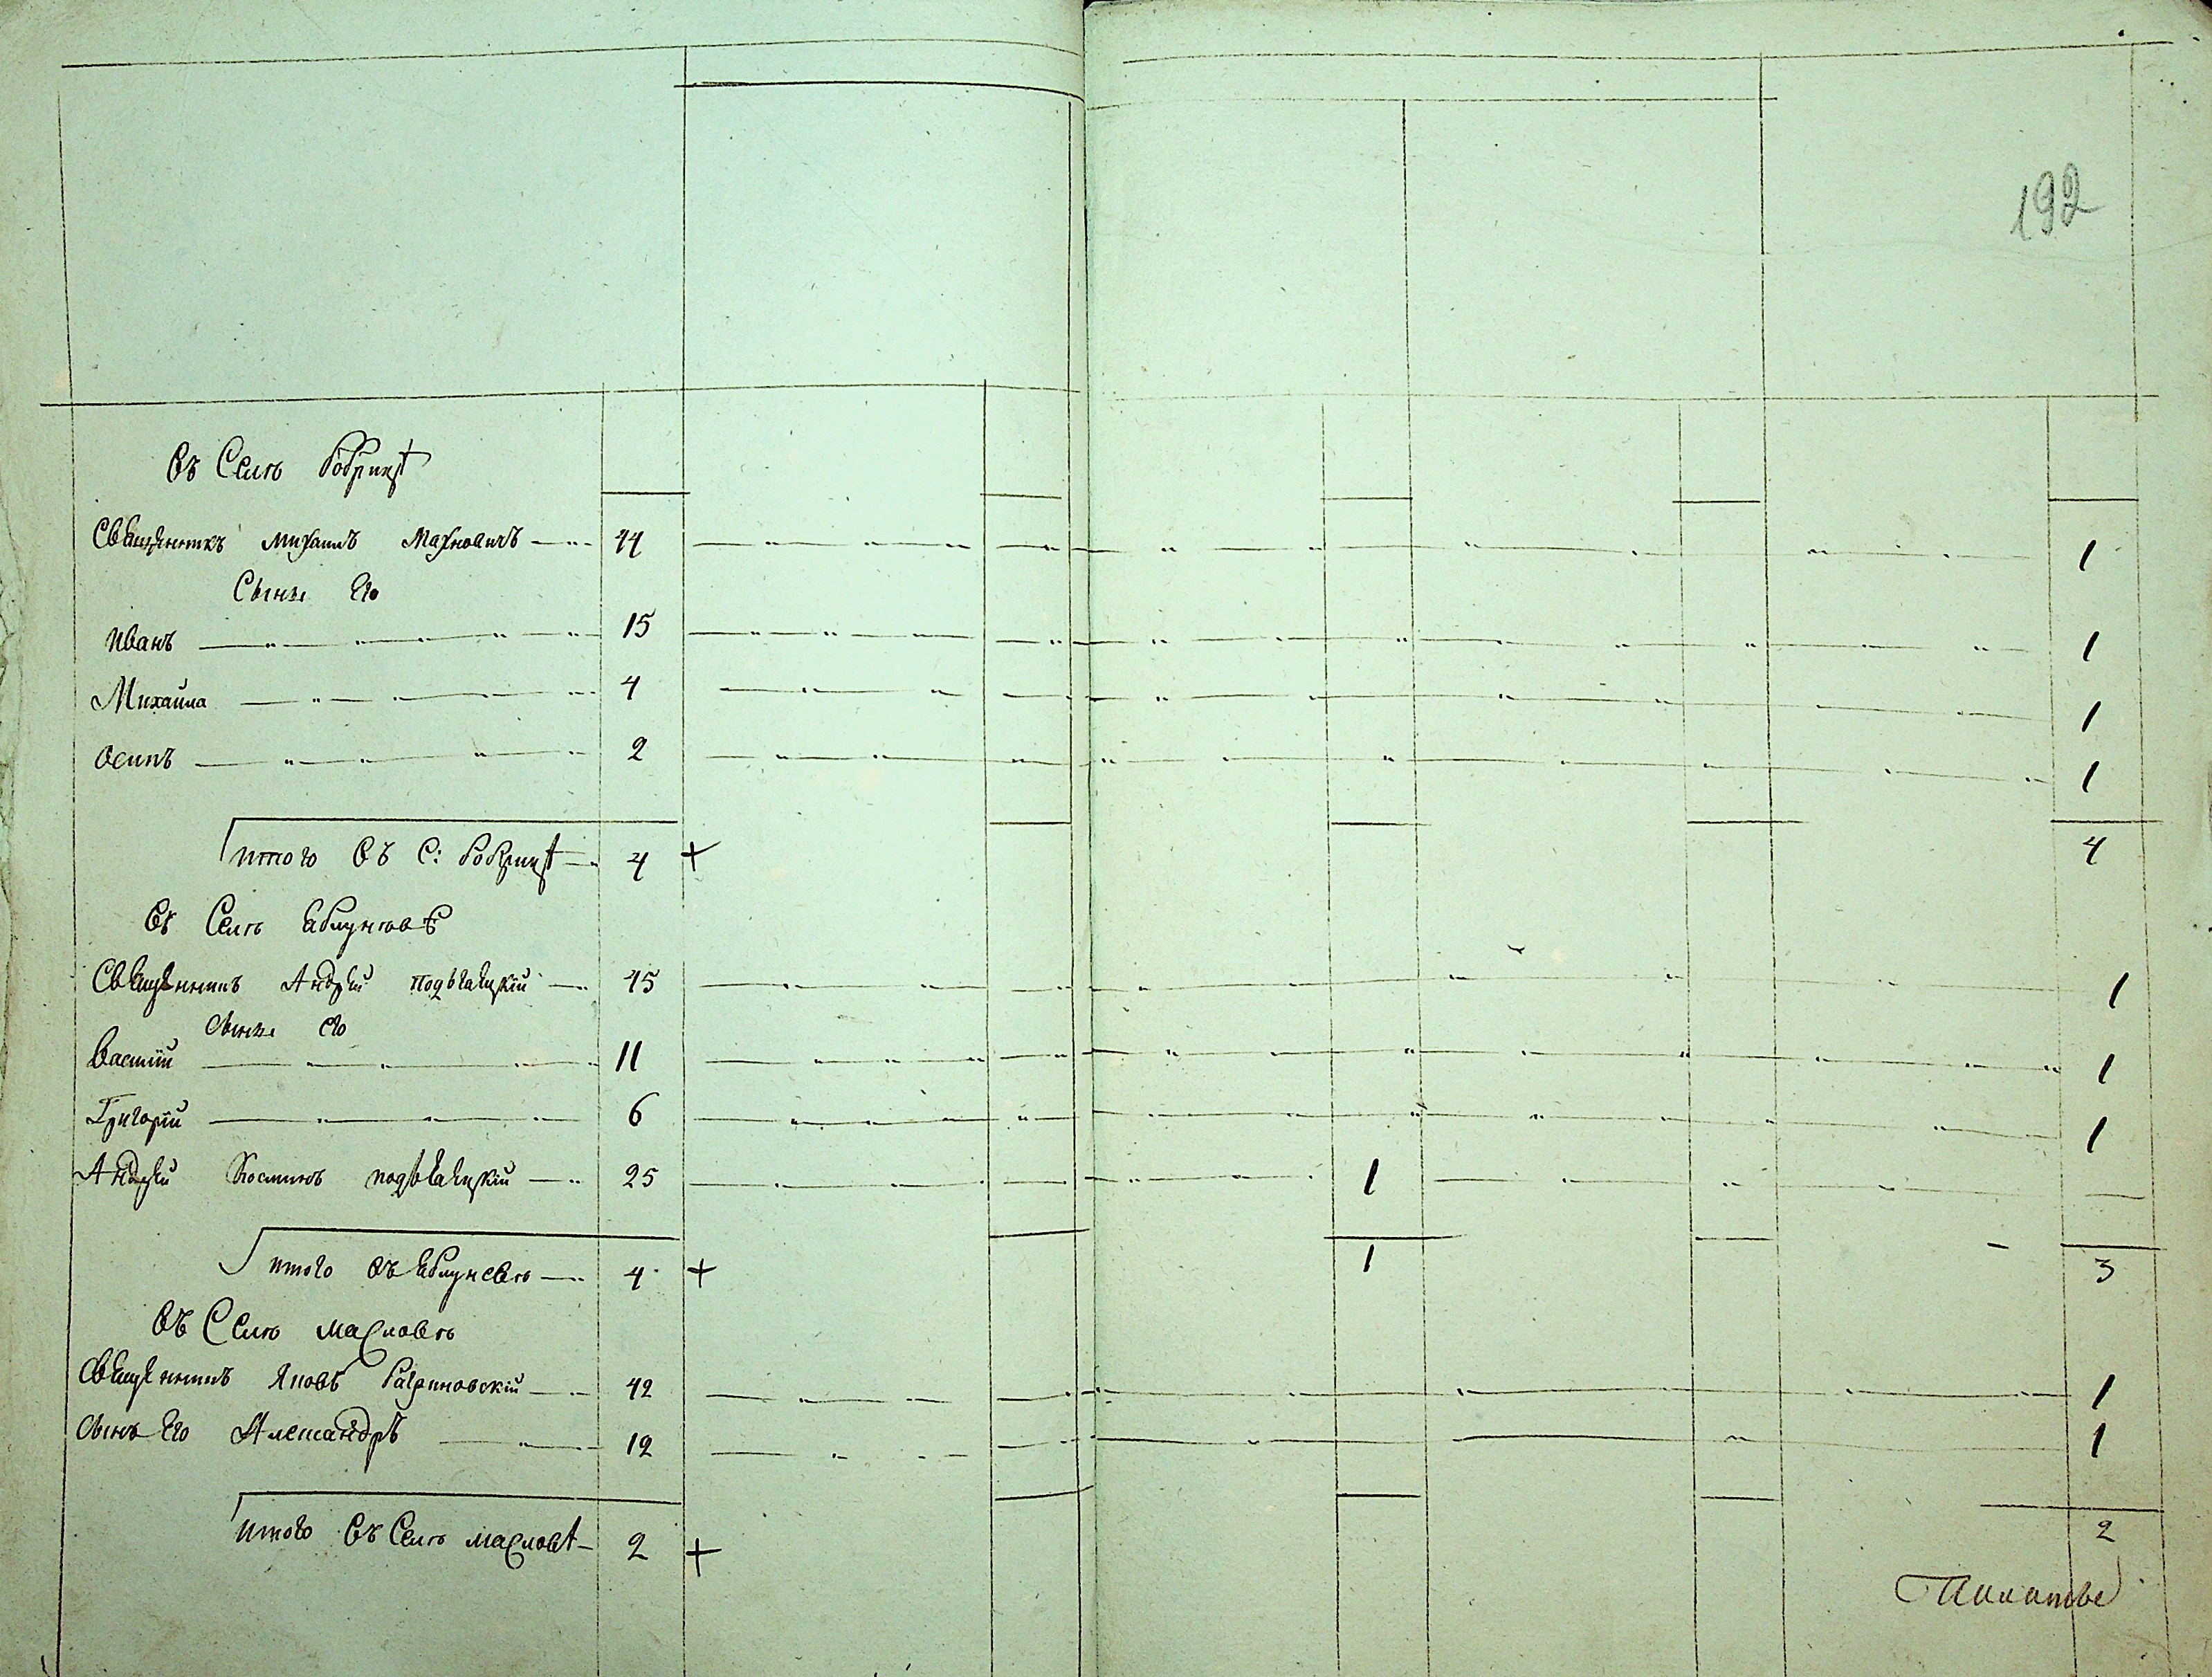 192
Въ Селѣ Бобрицѣ
Священникъ Михаилъ Махновичъ 44 1
Сыны Его
Иванъ 15 1
Михаила 4 1
Осипъ 2 1
Итого Въ С: Бобрицѣ 4 + 4
Въ Селѣ Яблуновѣ
Священникъ Андрей 45 1
Сыны Его
Василій 11 1
Григорій 6 1
Андрей 25 1
Итого Въ Яблуновѣ 4 + 1 3
Въ Селѣ Масловѣ
Священникъ Яковъ 42 1
Сынъ Его Александръ 12 1
Итого Въ Селѣ Масловѣ 2 + 2